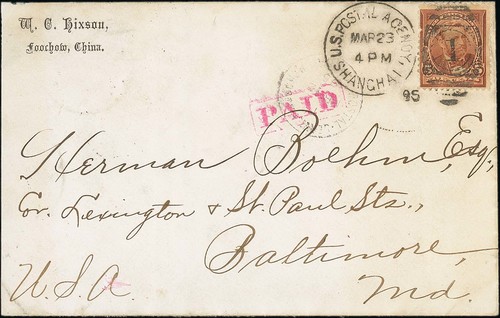 W. C. Hixson,
Foochow, China.
U.S. POSTAL AGENCY
MAR 23
4 PM
SHANGHAI
95
1
5 5
PAID
Herman Boehm, Esq.,
Cor. Lexington & St. Paul Sts.,
Baltimore,
Md.
U.S.A.